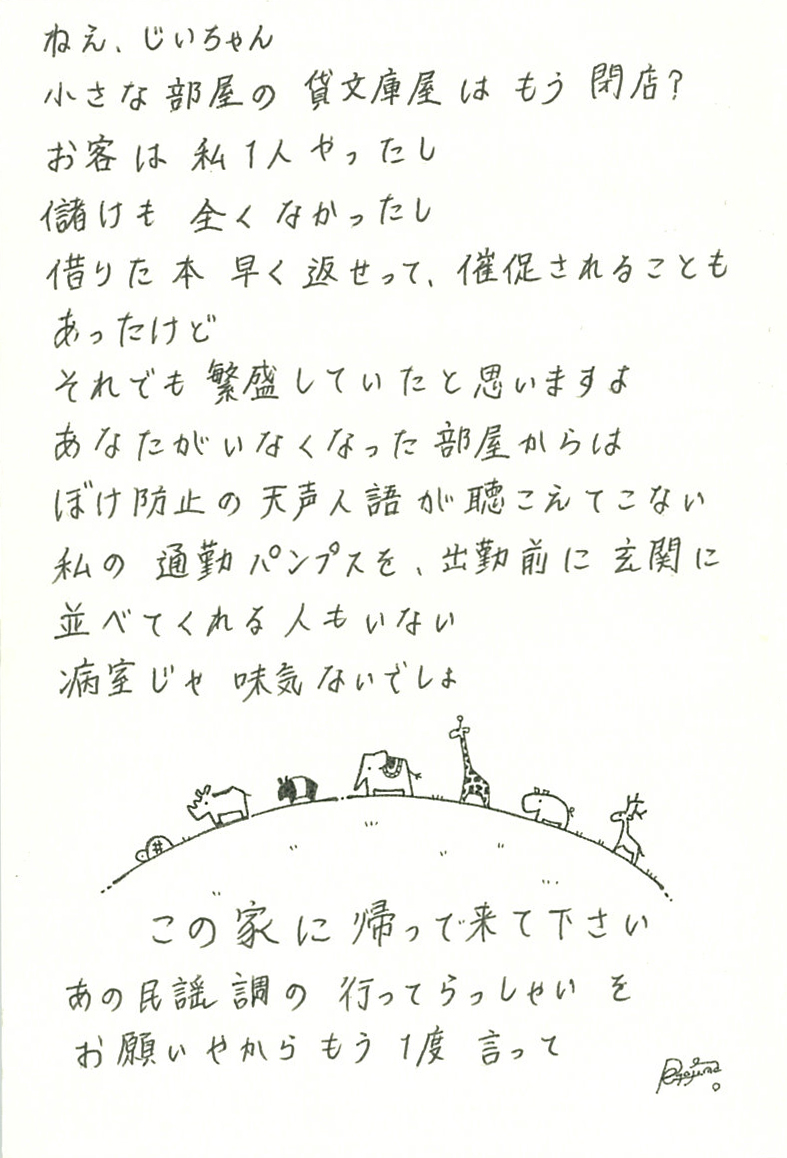 ねえ、じいちゃん
小さな部屋の 貸文庫屋は もう 閉店?
お客は 私1人やったし
儲けも 全くなかったし
借りた本 早く返せって、催促されることも
あったけど
それでも繁盛していたと思いますよ
あなたがいなくなった部屋からは
ぼけ防止の天声人語が聴こえてこない
私の 通勤パンプスを、出勤前に玄関に
並べてくれる人もいない
病室じゃ 味気ないでしょ
この家に帰って来て下さい
あの民謡調の 行ってらっしゃいを
お願いやからもう1度 言って